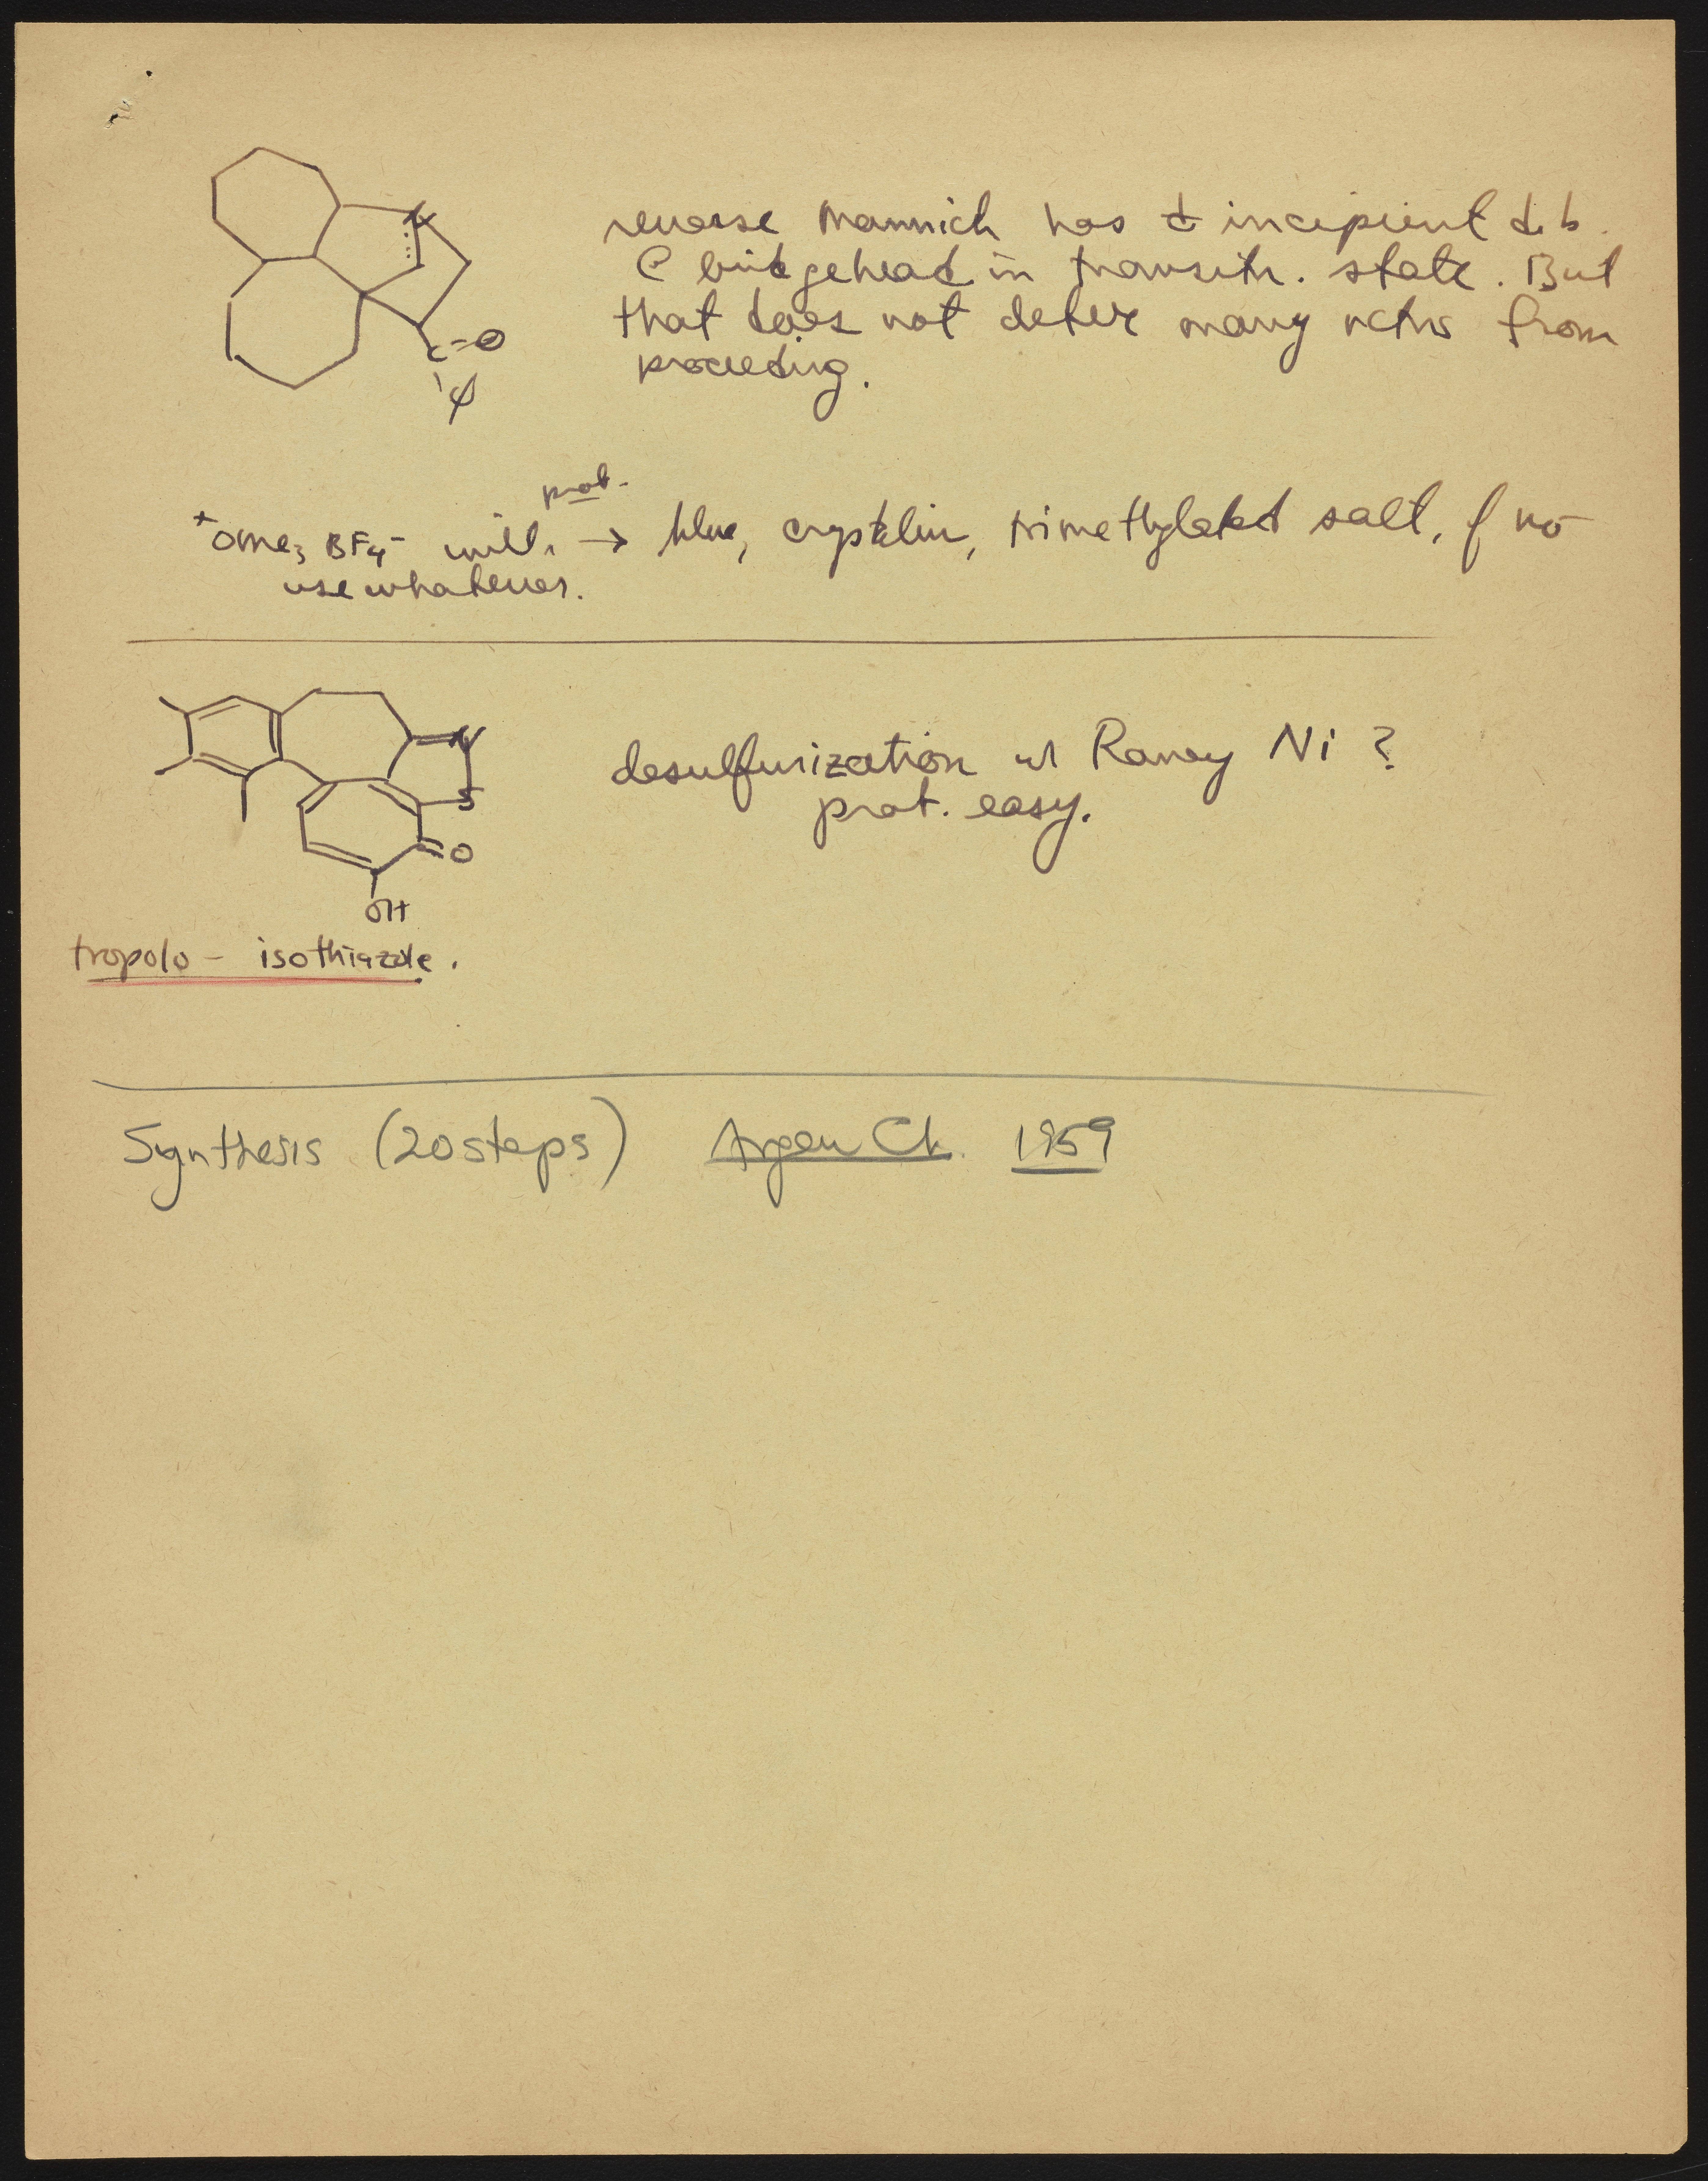 N
reverse Mannich has incipient d. b.
@ bridgehead in transitn. state. But
that does not deter many rctns from
proceeding.
C=O
φ
prob.
+OMe3 BF4- will → blue, crystalin, trimethylated salt, of no
use whatever.
N
S
=O
OH
desulfurization w/ Raney Ni ?
prob. easy.
tropolo - isothiazole.
Synthesis (20 steps) Angew Ch. 1959